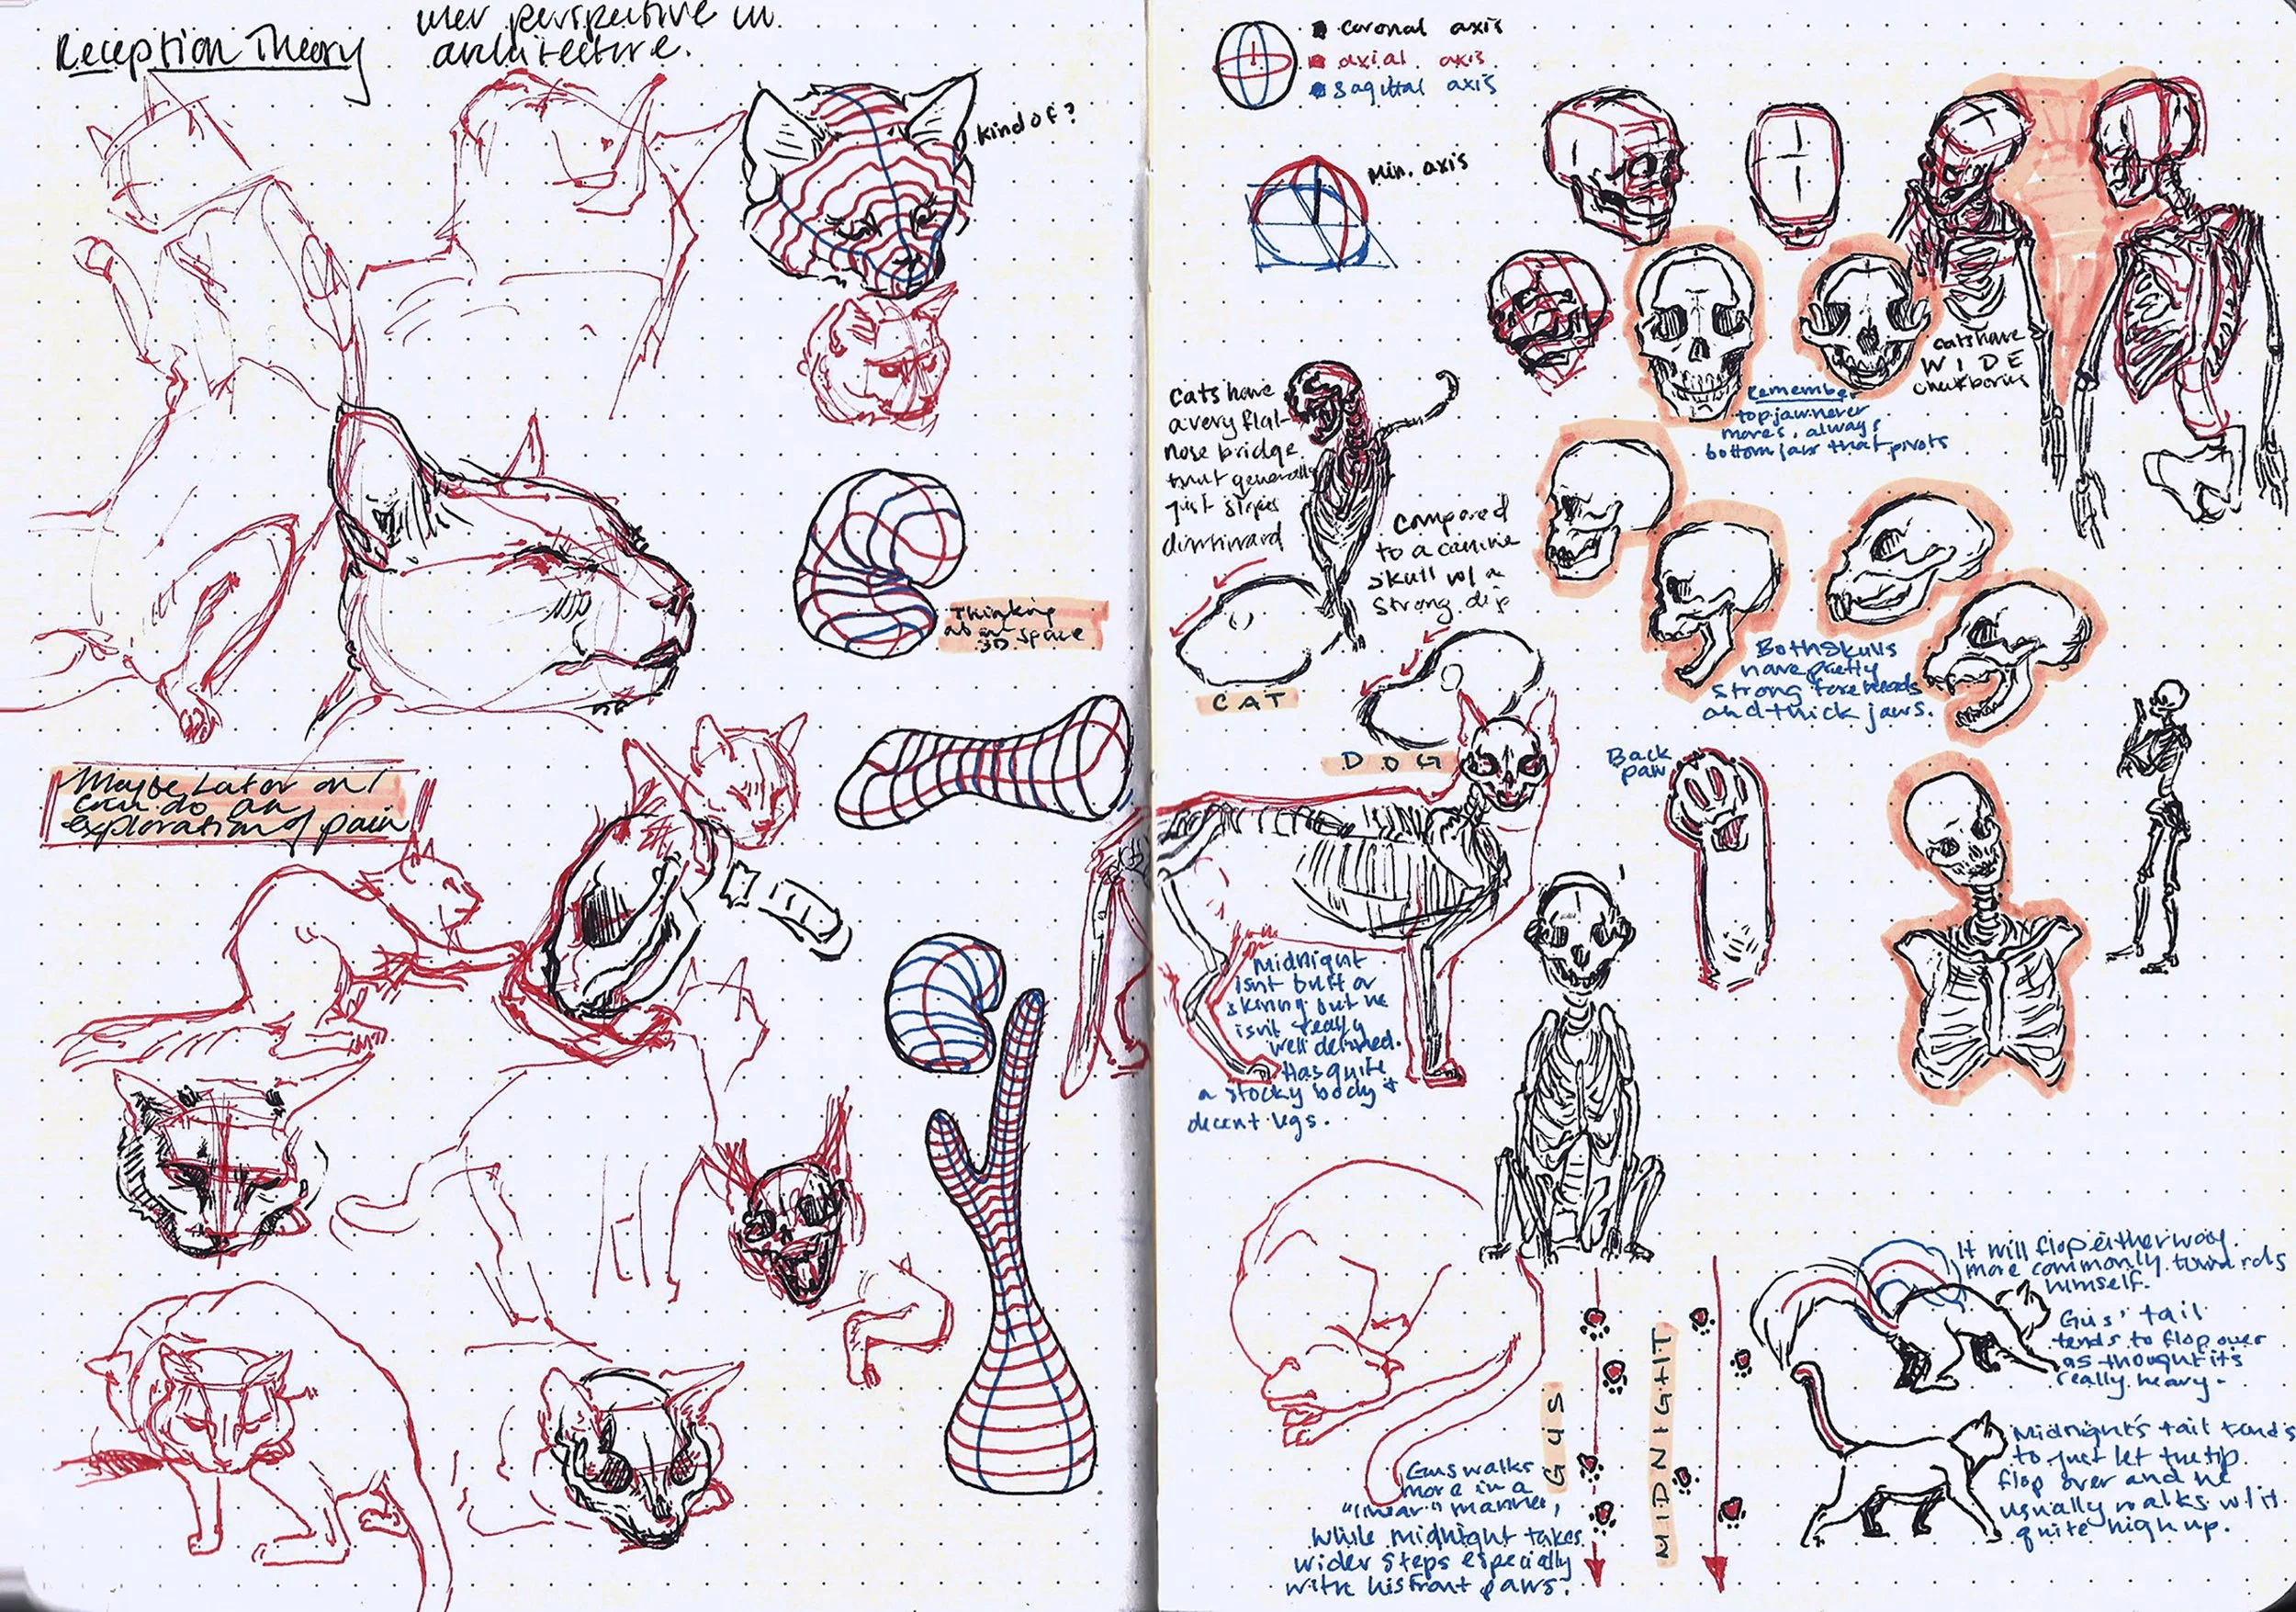 Reception Theory
user perspective in
architecture.
kind of?
Thinking
about
3D space
Maybe Later on I
can do an
exploration of pain
coronal axis
axial axis
sagittal axis
Min. axis
cats have
W I D E
cheekbones
Remember
top jaw never
moves, always
bottom jaw that pivots
Cats have
a very flat
nose bridge
that generally
just slopes
downward
Compared
to a canine
skull w/ a
strong dip
CAT
DOG
Both skulls
have pretty
strong foreheads
and thick jaws.
Back
paw
Midnight
isnt buff or
skinny but he
isn't really
well defined.
Has quite
a stocky body +
decent legs.
GUS
MIDNIGHT
Gus walks
more in a
"linear" manner,
while midnight takes
wider steps especially
with his front paws.
It will flop either way
more commonly towards
himself.
Gus' tail
tends to flop over
as thought its
really heavy -
Midnight's tail tends
to just let the tip
flop over and he
usually walks w/ it
quite high up.